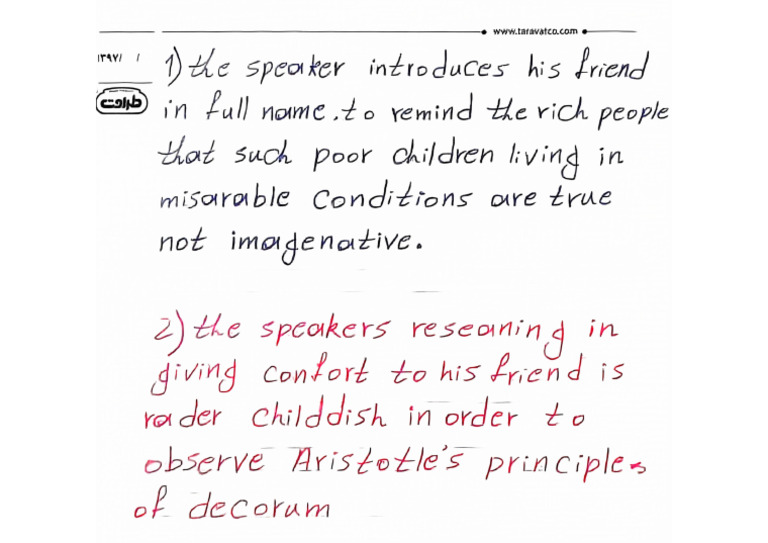 www.taravatco.com
۱۳۹۷/ /
طراوت
1) the speaker introduces his friend
in full name. to remind the rich people
that such poor children living in
misarable Conditions are true
not imagenative.
2) the speakers reseaning in
giving confort to his friend is
rader childdish in order to
observe Aristotle's principles
of decorum